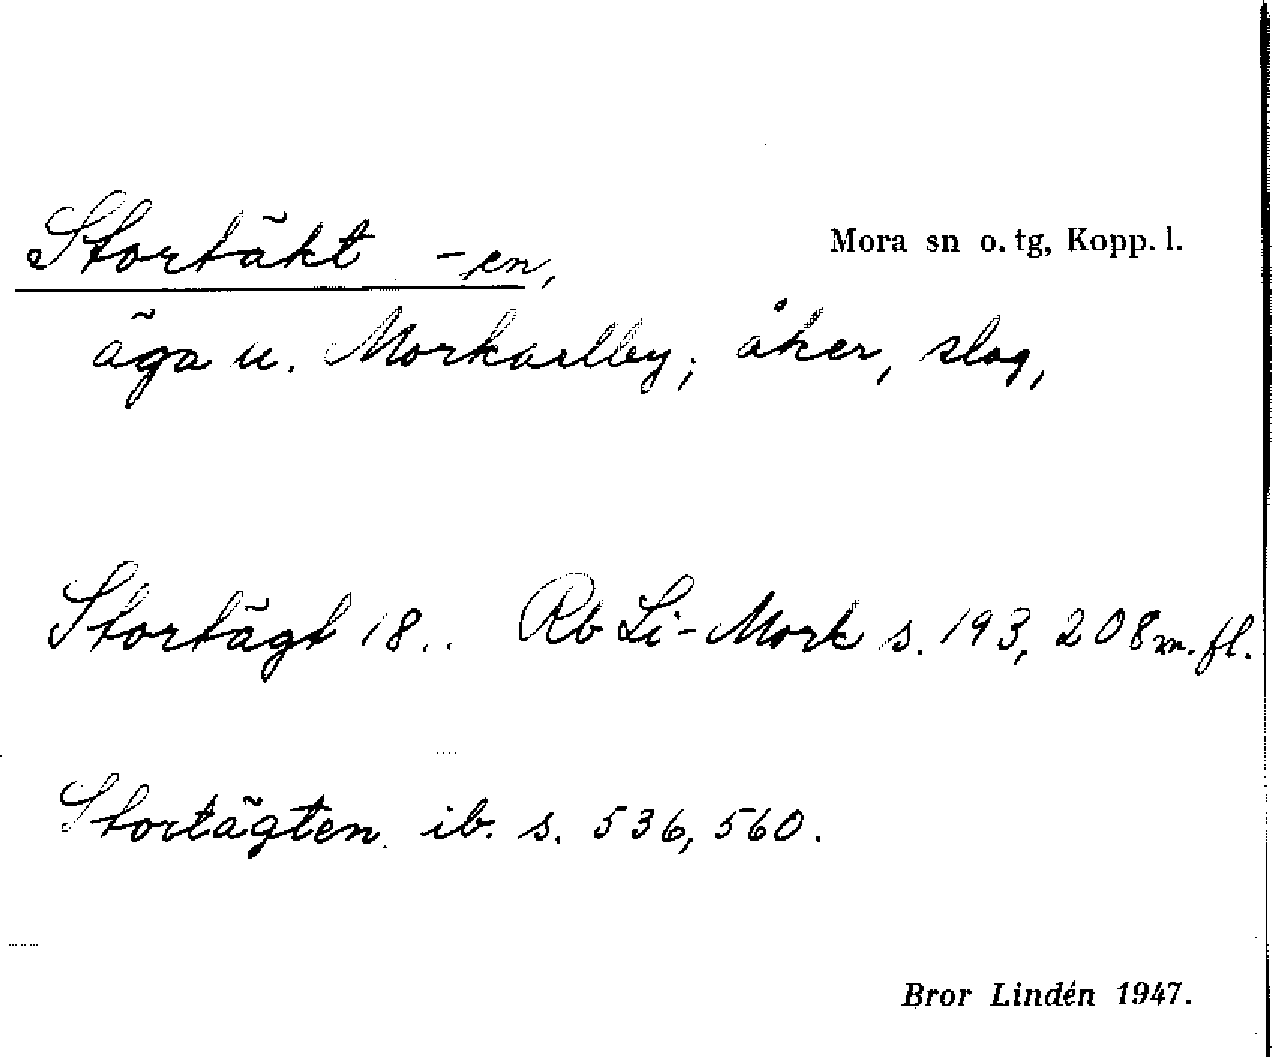 Stortäkt -en,
Mora sn o. tg, Kopp. l.
äga u. Morkarlby; åker, slog,
Stortägt 18.. Rb Li-Mork s. 193, 208 m. fl.
Stortägten ib. s. 536, 560.
Bror Lindén 1947.